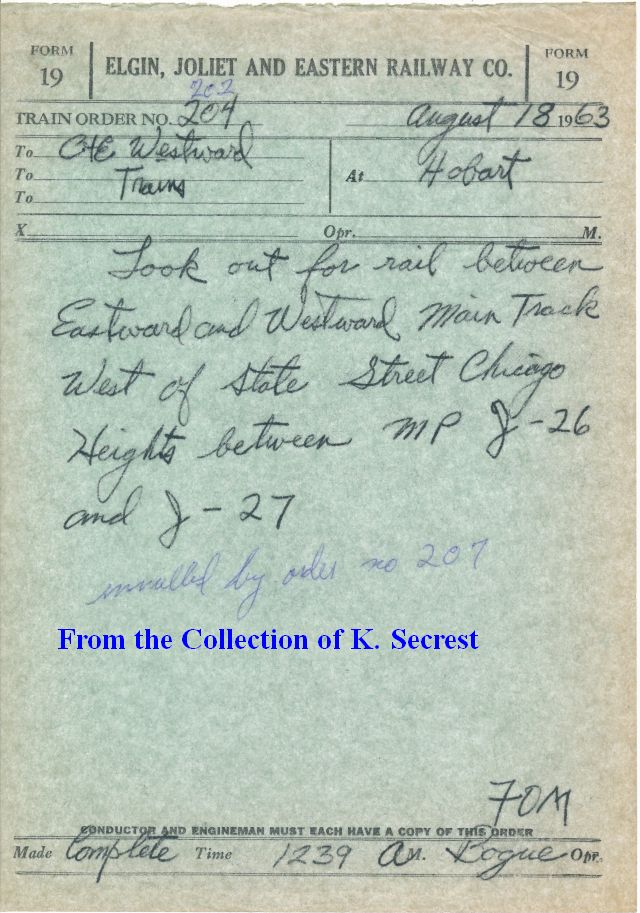 FORM 19
ELGIN, JOLIET AND EASTERN RAILWAY CO.
FORM 19
202
TRAIN ORDER NO. 204
August 18 1963
To C&E Westward
To Trains
To
At Hobart
X Opr. M.
Look out for rail between
Eastward and Westward Main Track
West of State Street Chicago
Heights between MP J-26
and J-27
by order no 207
From the Collection of K. Secrest
FOM
CONDUCTOR AND ENGINEMAN MUST EACH HAVE A COPY OF THIS ORDER
Made Complete Time 1239 AM. Bogue Opr.